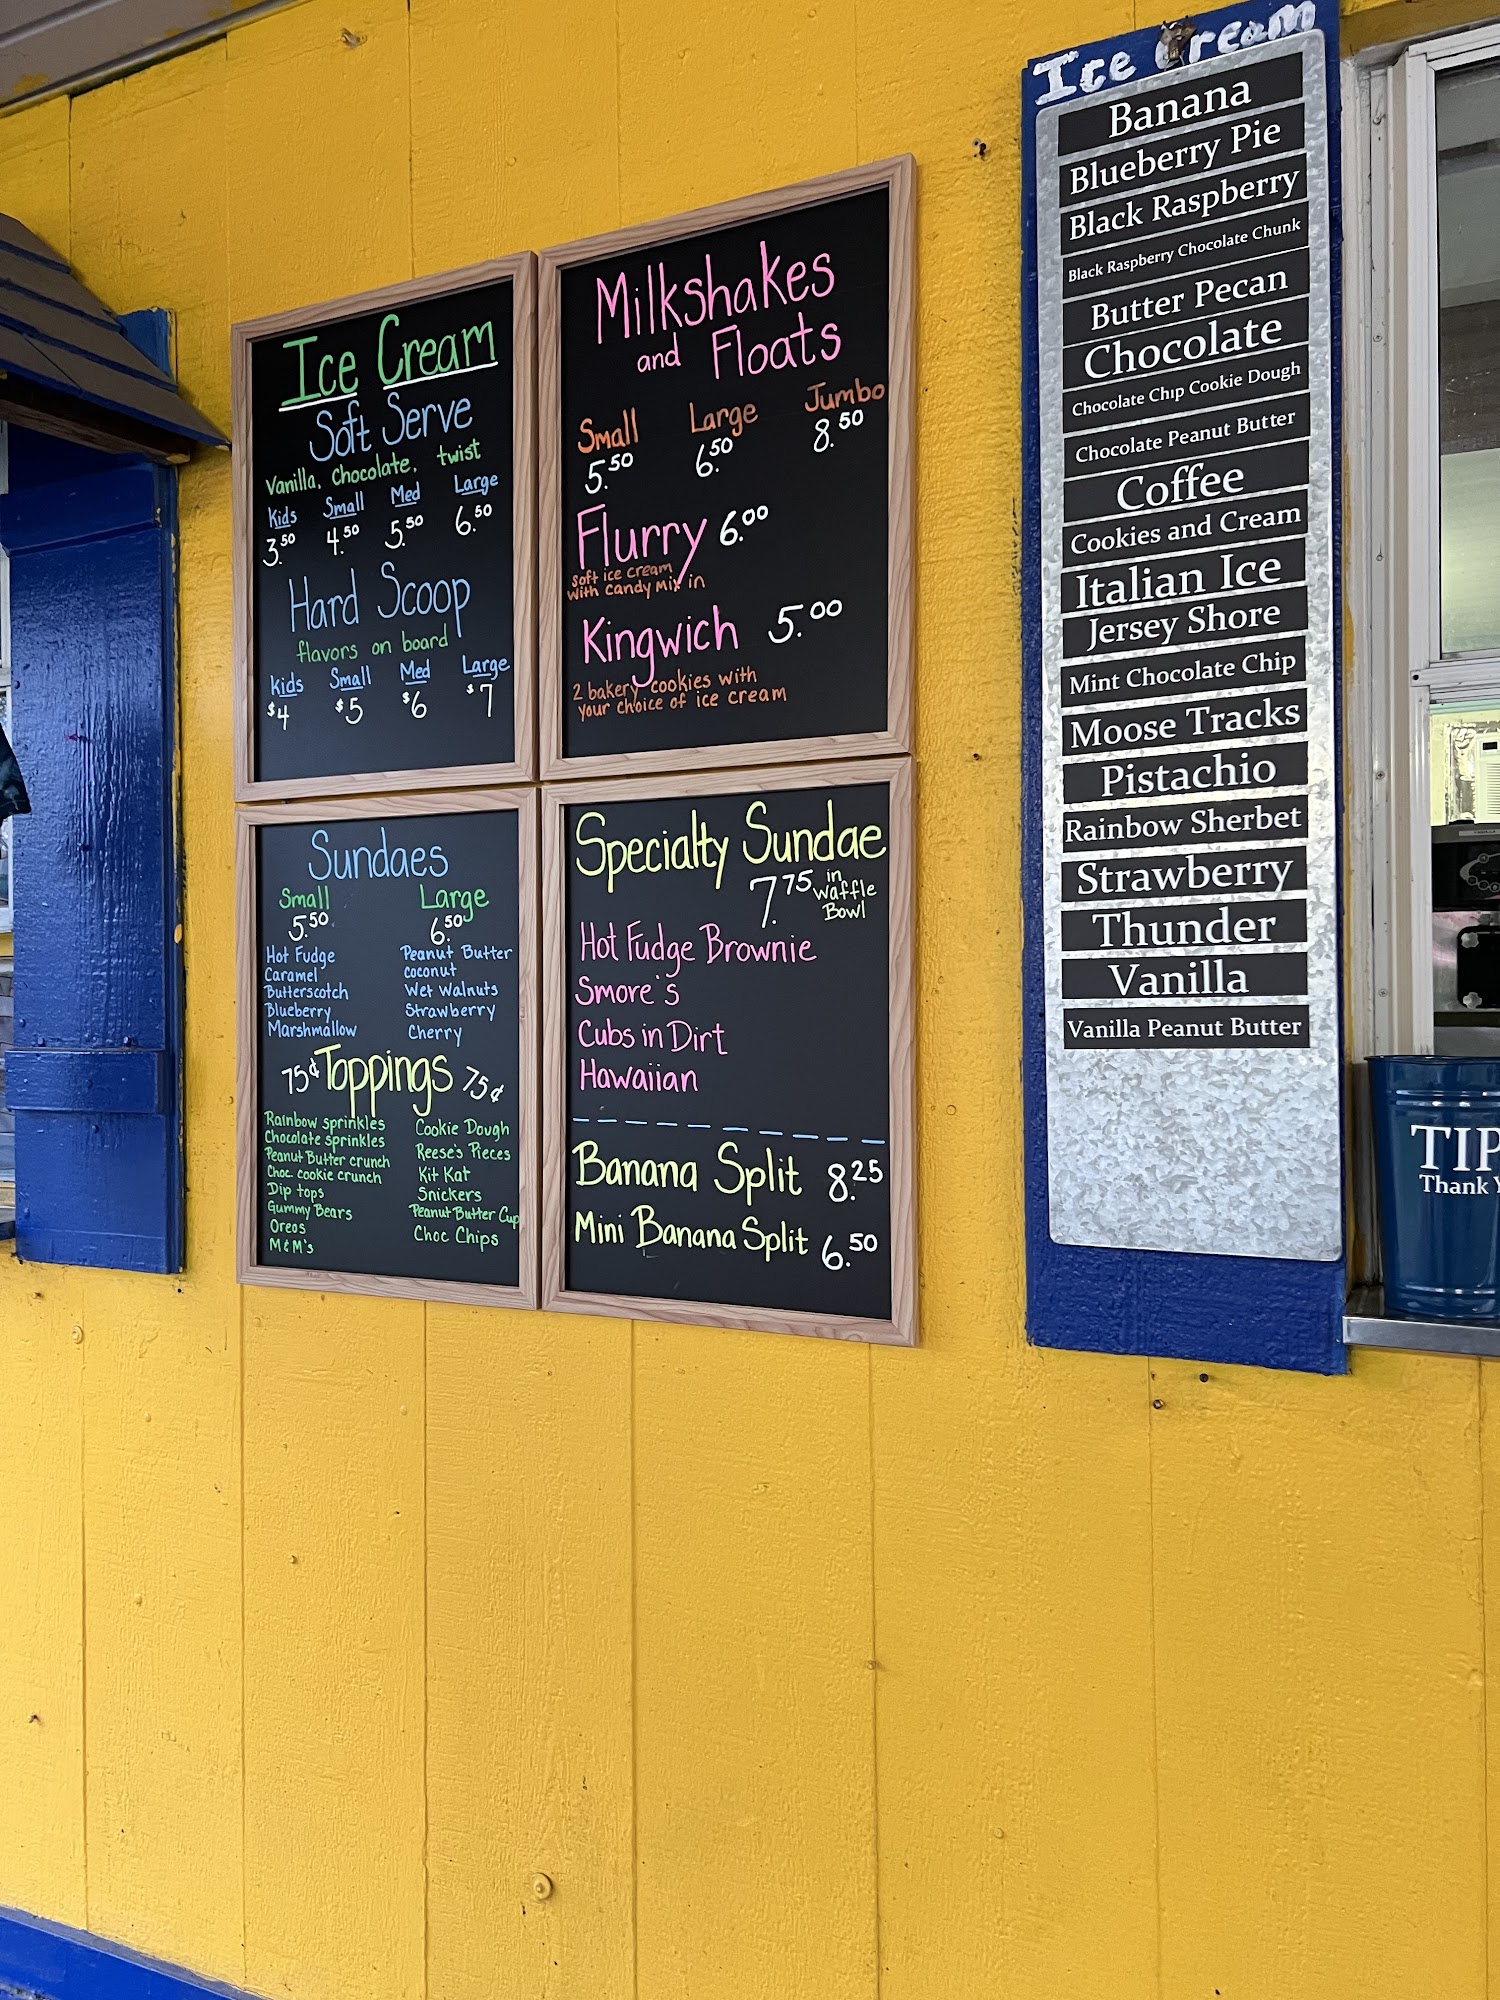 Ice Cream
Soft Serve
Vanilla, Chocolate, twist
Kids Small Med Large
3.50 4.50 5.50 6.50
Hard Scoop
flavors on board
Kids Small Med Large
$4 $5 $6 $7
Milkshakes
and Floats
Small Large Jumbo
5.50 6.50 8.50
Flurry 6.00
soft ice cream
with candy mix in
Kingwich 5.00
2 bakery cookies with
your choice of ice cream
Sundaes
Small Large
5.50 6.50
Hot Fudge Peanut Butter
Caramel coconut
Butterscotch Wet Walnuts
Blueberry Strawberry
Marshmallow Cherry
75¢ Toppings 75¢
Rainbow sprinkles Cookie Dough
Chocolate sprinkles Reese's Pieces
Peanut Butter crunch Kit Kat
Choc. cookie crunch Snickers
Dip tops Peanut Butter Cup
Gummy Bears Choc Chips
Oreos
M&M's
Specialty Sundae
7.75 in
Waffle
Bowl
Hot Fudge Brownie
Smore's
Cubs in Dirt
Hawaiian
Banana Split 8.25
Mini Banana Split 6.50
Ice Cream
Banana
Blueberry Pie
Black Raspberry
Black Raspberry Chocolate Chunk
Butter Pecan
Chocolate
Chocolate Chip Cookie Dough
Chocolate Peanut Butter
Coffee
Cookies and Cream
Italian Ice
Jersey Shore
Mint Chocolate Chip
Moose Tracks
Pistachio
Rainbow Sherbet
Strawberry
Thunder
Vanilla
Vanilla Peanut Butter
TIP
Thank Y